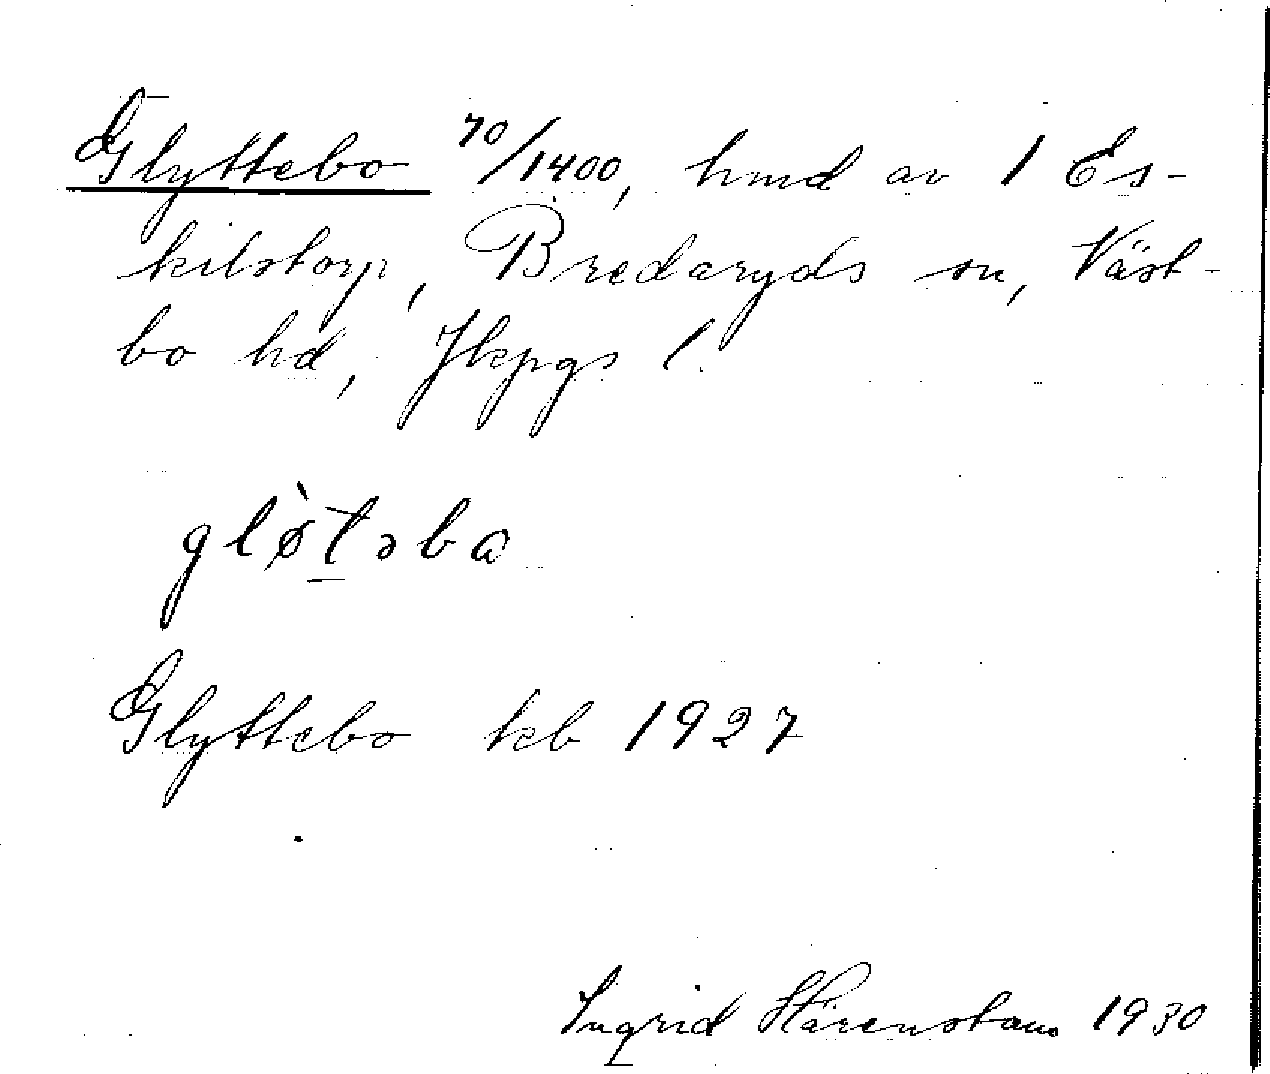 Glyttebo 70/1400, hmd av 1 Es-
kilstorp, Bredaryds sn, Väst-
bo hd, Jkpgs l.
glø̀t̲əba
Glyttebo kb 1927
Ingrid Härenstam 1930